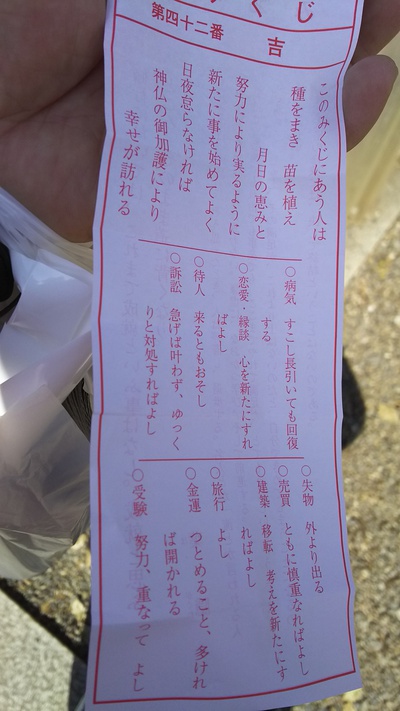 くじ
第四十二番
吉
このみくじにあう人は
種をまき 苗を植え
月日の恵みと
努力により実るように
新たに事を始めてよく
日夜怠らなければ
神仏の御加護により
幸せが訪れる
○病気 すこし長引いても回復
する
○恋愛・縁談 心を新たにすれ
ばよし
○待人 来るともおそし
○訴訟 急げば叶わず、ゆっく
りと対処すればよし
○失物 外より出る
○売買 ともに慎重なればよし
○建築・移転 考えを新たにす
ればよし
○旅行 よし
○金運 つとめること、多けれ
ば開かれる
○受験 努力、重なって よし